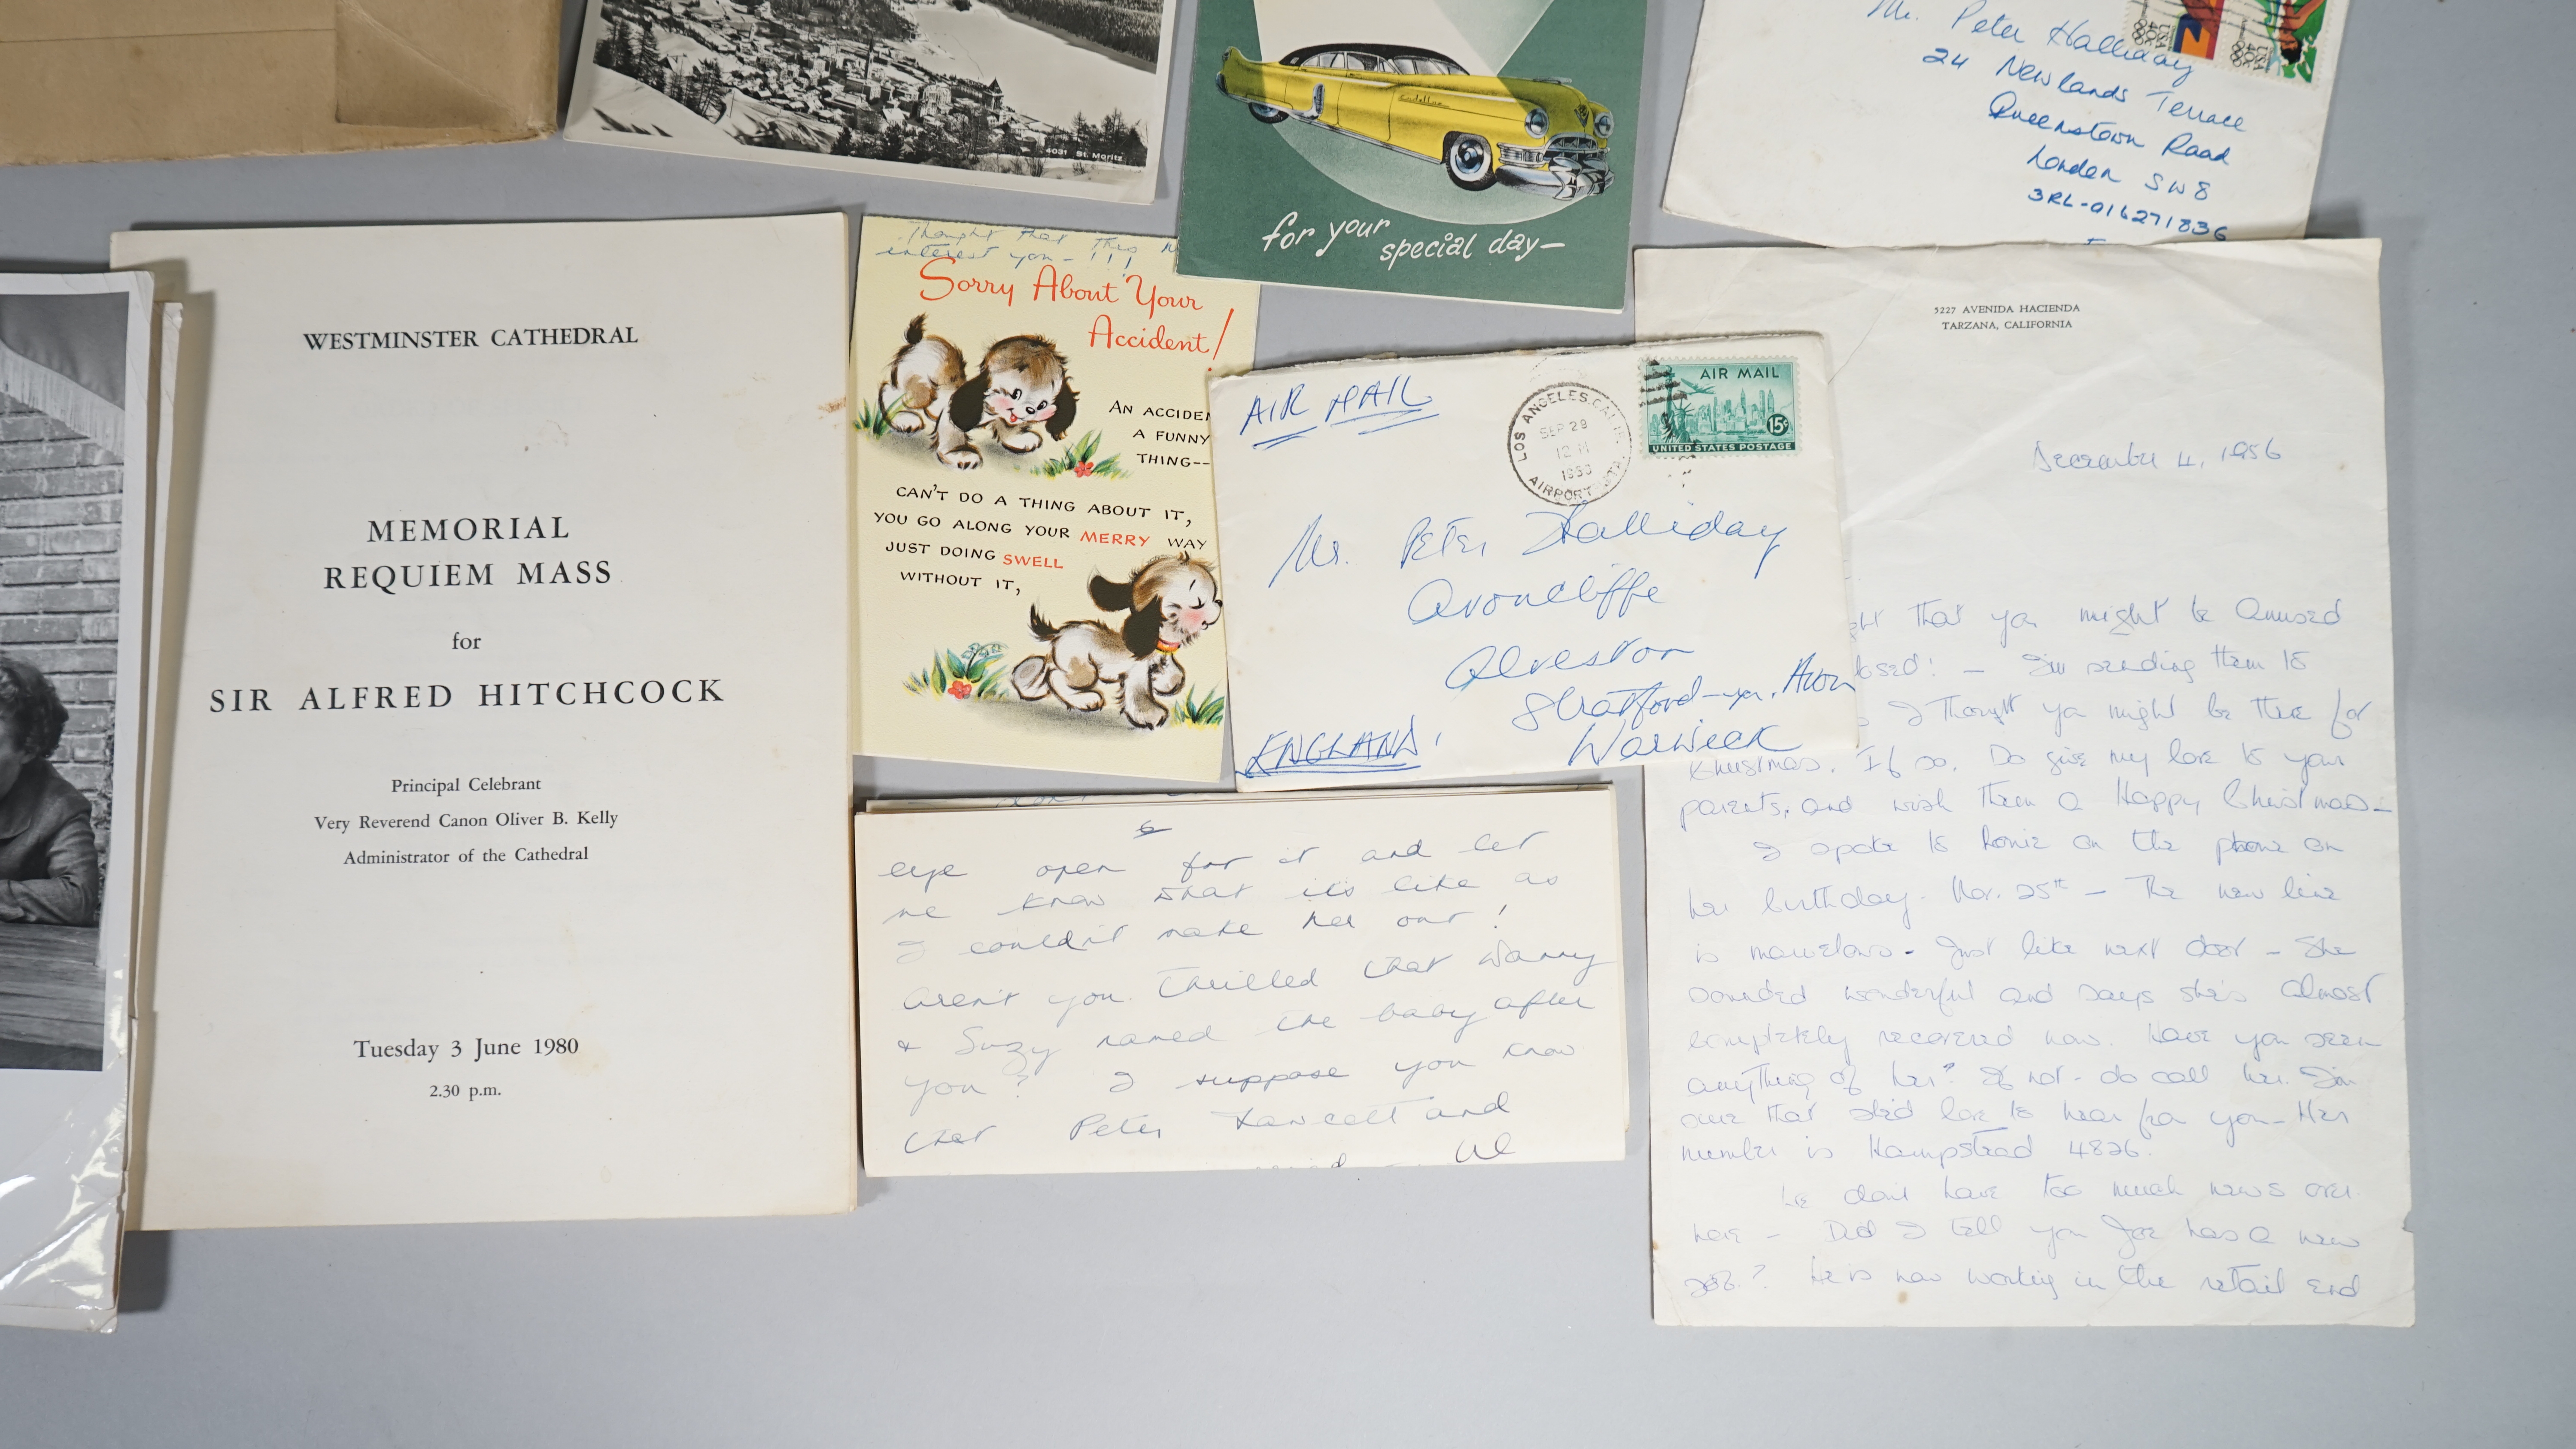 4031 St. Moritz
Cadillac
for your
special day—
Mr. Peter Halliday
24 Newlands Terrace
Queenstown Road
London SW8
3RL-016271836
USA
40c
USA
40c
WESTMINSTER CATHEDRAL
MEMORIAL
REQUIEM MASS
for
SIR ALFRED HITCHCOCK
Principal Celebrant
Very Reverend Canon Oliver B. Kelly
Administrator of the Cathedral
Tuesday 3 June 1980
2.30 p.m.
Thought that this
interest you - !!!
Sorry About Your
Accident!
AN ACCIDEN
A FUNNY
THING--
CAN'T DO A THING ABOUT IT,
YOU GO ALONG YOUR MERRY WAY
JUST DOING SWELL
WITHOUT IT,
AIR MAIL
LOS ANGELES, CALIF.
SEP 28
12 M
AIRPORT
AIR MAIL
15¢
UNITED STATES POSTAGE
Mr. Peter Halliday
Avoncliffe
Alveston
Stratford-on-Avon
Warwick
ENGLAND.
6
eye open for it and let
me know what it's like as
I couldn't make her out!
Aren't you thrilled that Danny
& Suzy named the baby after
you? I suppose you know
that Peter Fawcett and
5227 AVENIDA HACIENDA
TARZANA, CALIFORNIA
December 4, 1956
ght that you might be amused
losed! - I'm sending them to
I thought you might be there for
Christmas. If so. Do give my love to your
parents, and wish them a Happy Christmas -
I spoke to Ronie on the phone on
her birthday. Nov. 25th - The new line
is marvelous - Just like next door - She
sounded wonderful and says she's almost
completely recovered now. Have you seen
anything of her? If not - do call her. I'm
sure that she'd love to hear from you - Her
number is Hampstead 4826.
We don't have too much news over
here - Did I tell you Joe has a new
job? He is now working in the retail end